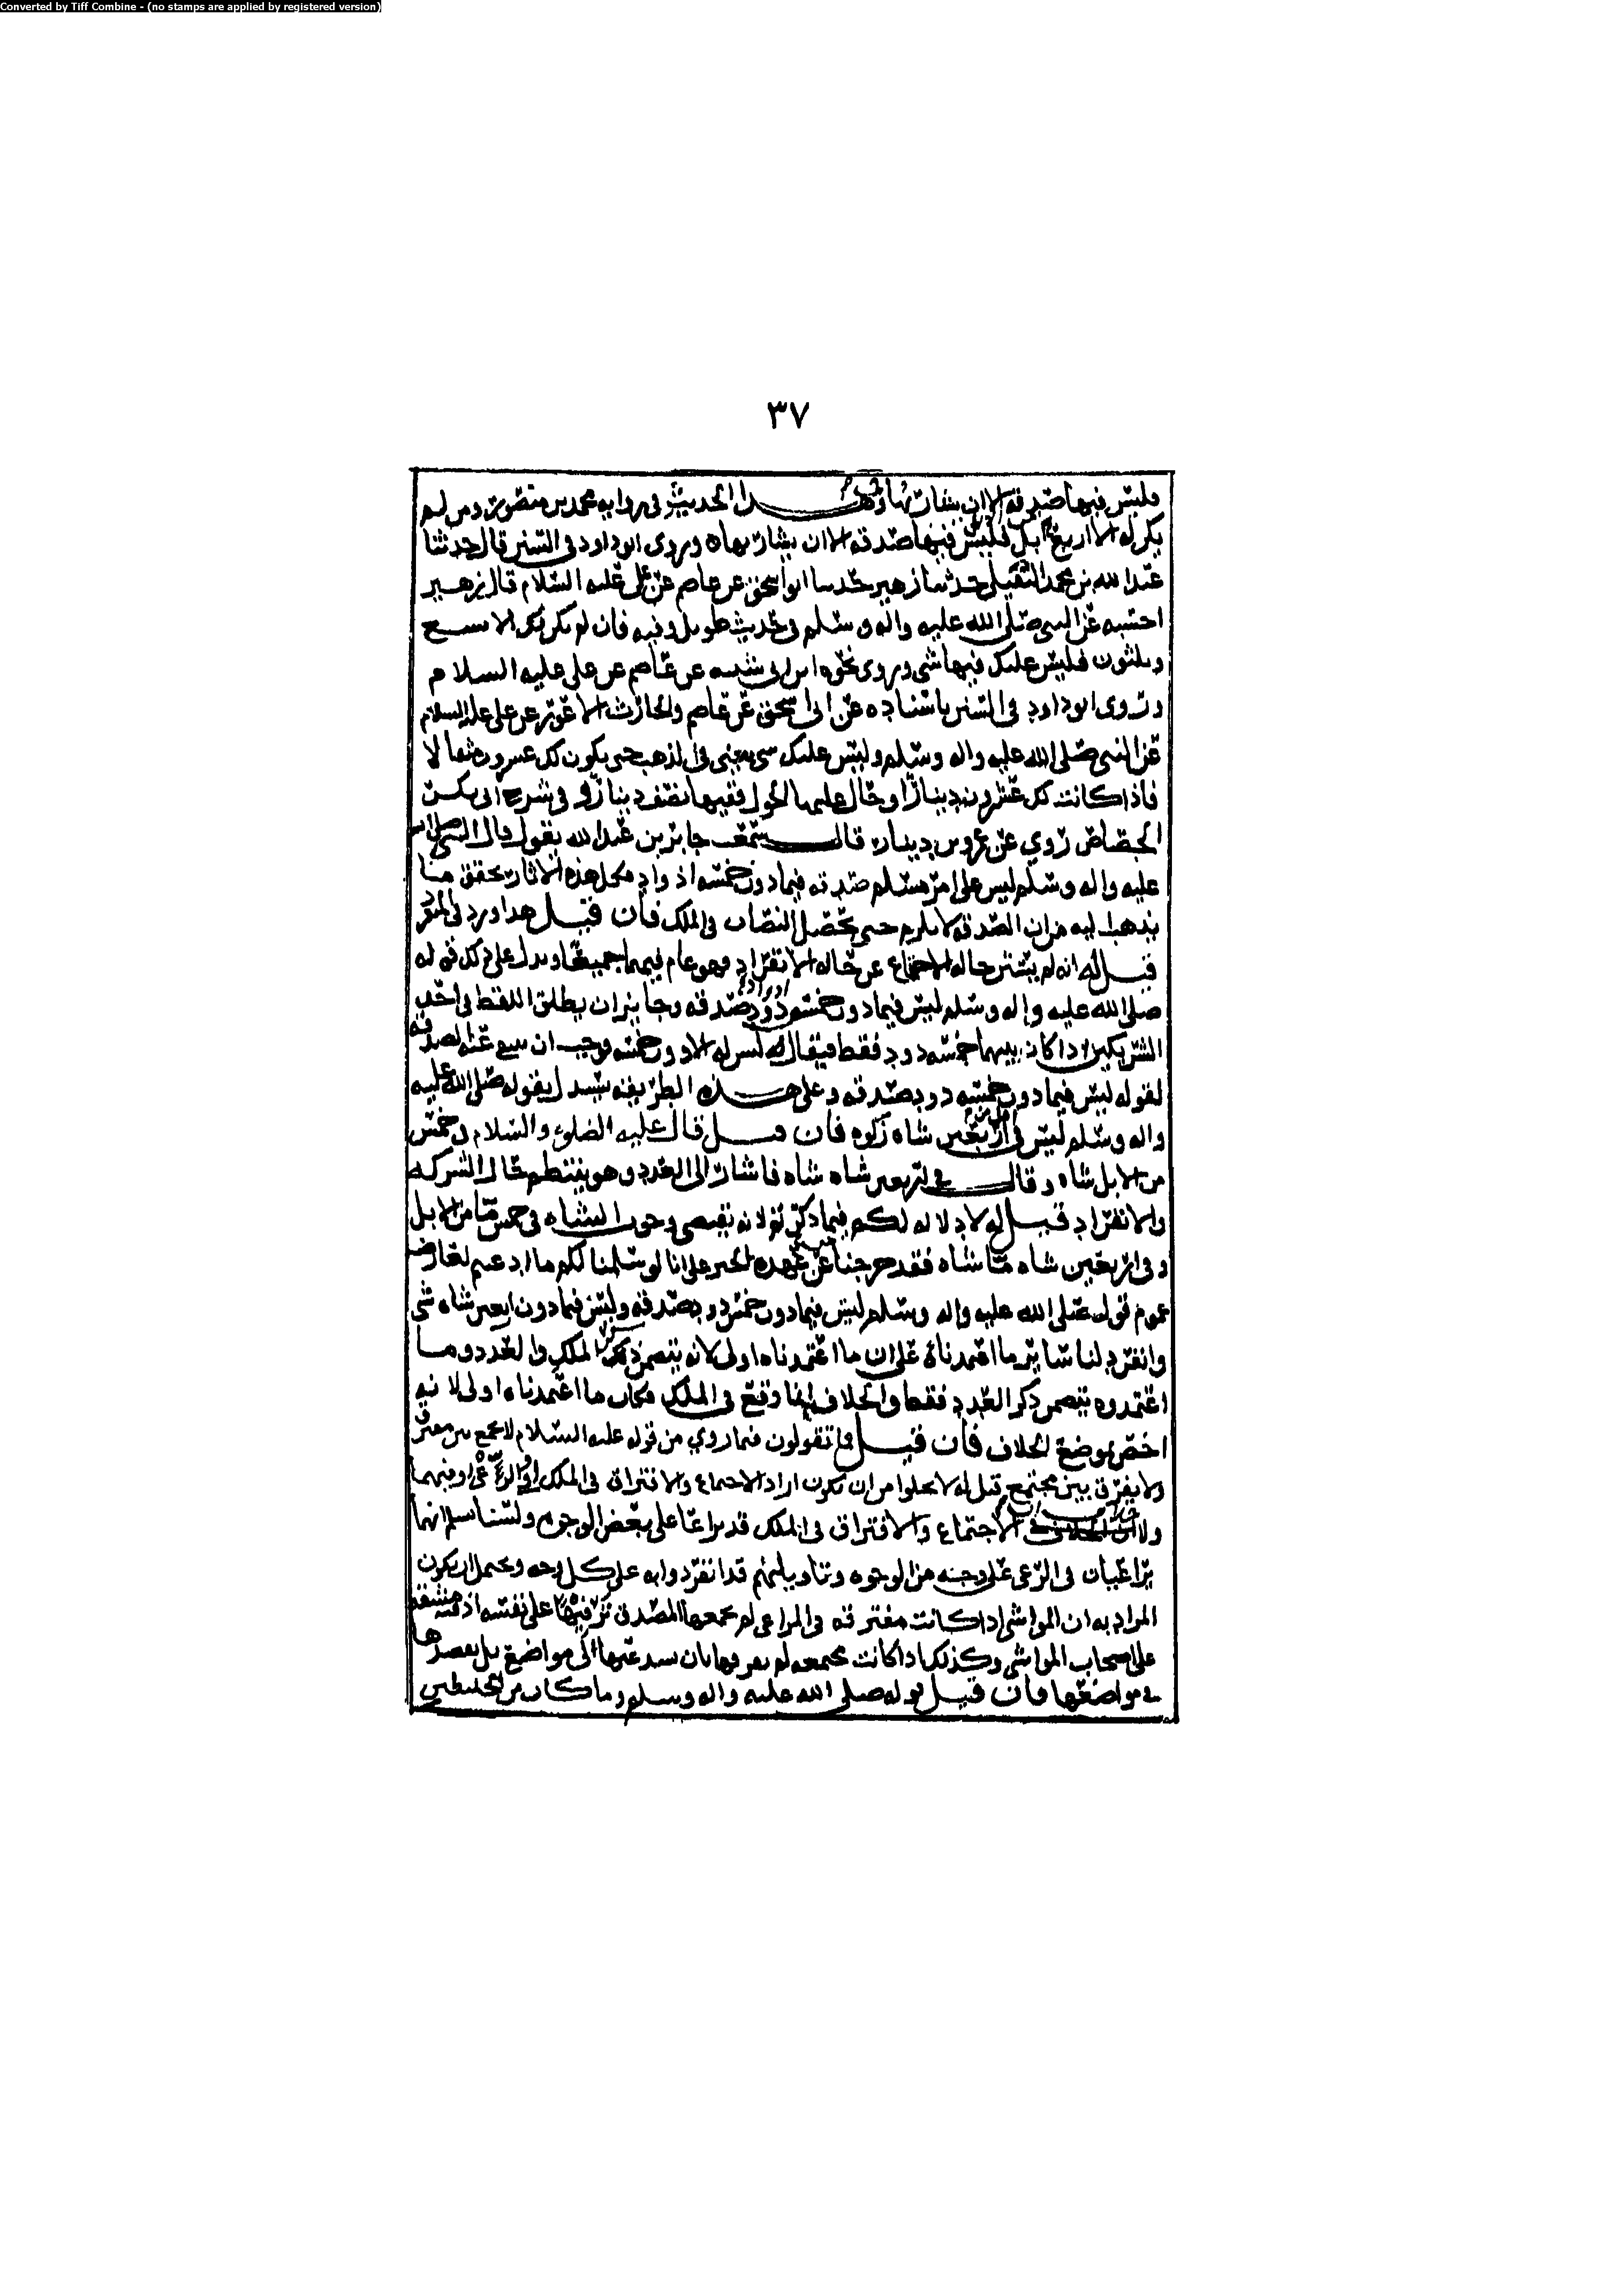 Converted by Tiff Combine - (no stamps are applied by registered version)
٣٧
فليس فيها صدقه الا ان يشا ربها وهذا الحديث في روايه محمد بن منصور ومن لم
يكن له الا اربع ابل فليس فيها صدقه الا ان يشا ربها ه وروى ابو داود في السنن قال حدثنا
عبد الله بن محمد النفيلي حدثنا زهير حدثنا ابو اسحق عن عاصم عن علي عليه السلام قال زهير
احسبه عن النبي صلى الله عليه واله وسلم وفي حديث طويل وفيه فان لم يكن لك الا تسع
وثلثون فليس عليك فيها شي وروى نحوه ابن ابي شيبه عن عاصم عن علي عليه السلام
وروى ابو داود في السنن باسناده عن ابي اسحق عن عاصم والحارث الاعور عن علي عليه السلام
عن النبي صلى الله عليه واله وسلم وليس عليك شي يعني في الذهب حتى يكون لك عشرون مثقالا
فاذا كانت لك عشرون دينارا وحال عليها الحول ففيها نصف دينار وفي شرح ابي بكر
الجصاص روي عن عمرو بن دينار قال سمعت جابر بن عبد الله يقول قال النبي صلى الله
عليه واله وسلم ليس على امرء مسلم صدقه فيما دون خمسه اذواد فكل هذه الاثار تحقق ما
نذهب اليه من ان الصدقه لا تلزم حتى يحصل النصاب في الملك فان قيل هذا ورد في المنفرد
قيل له انه لم يستثن حاله الاجتماع عن حاله الانفراد وهو عام فيهما جميعا ويدل على ذلك قوله
صلى الله عليه واله وسلم ليس فيما دون خمسه ذود صدقه وجايز ان يطلق اللفظ في احد
الشريكين اذا كان بينهما خمسه ذود فقط فيقال له ليس له الا دون خمسه فوجب ان ينتفي عنه الصدقه
لقوله ليس فيما دون خمسه ذود صدقه وعلى هذه الطريقه نستدل بقوله صلى الله عليه
واله وسلم ليس في اقل من اربعين شاه زكوه فان قيل قال عليه الصلوه والسلام في خمس
من الابل شاه وقال في اربعين شاه شاه فاشار الى العدد وهو ينتظم حال الشركه
والانفراد قيل له لا دلاله لكم فيما ذكرتم لانه يقتضي وجوب الشاه في خمس ما من الابل
وفي اربعين شاه ما شاه فقد خرجنا عن عهده الخبر على انا لو سلمنا لكم ما ادعيتم لعارضه
عموم قوله صلى الله عليه واله وسلم ليس فيما دون خمس ذود صدقه وليس فيما دون اربعين شاه شي
وانفرد لنا ساير ما اعتمدناه على ان ما اعتمدناه اولى لانه يتضمن ذكر الملك والعدد وما
اعتمدوه يتضمن ذكر العدد فقط والخلاف انما وقع في الملك فكان ما اعتمدناه اولى لانه
اخص بموضع الخلاف فان قيل فما تقولون فيما روي من قوله عليه السلام لا يجمع بين مفترق
ولا يفرق بين مجتمع قيل له لا يخلوا من ان يكون اراد الاجتماع والافتراق في الملك او الرعي او فيهما
الاجتماع والافتراق في الملك قد يراعا على بعض الوجوه ولسنا نسلم انهما
يراعيان في الرعي على وجه من الوجوه وتاويلهم قد انفردوا به على كل وجه ويحتمل ان يكون
المراد به ان المواشي اذا كانت مفترقه في المراعي لم يجمعها المصدق على نفسه اذ فيه مشقه
على اصحاب المواشي وكذلك اذا كانت مجتمعه لم يفرقها بان يستدعيها الى مواضع بل يقصدها
في مواضعها فان قيل قوله صلى الله عليه واله وسلم وما كان من الخليطين